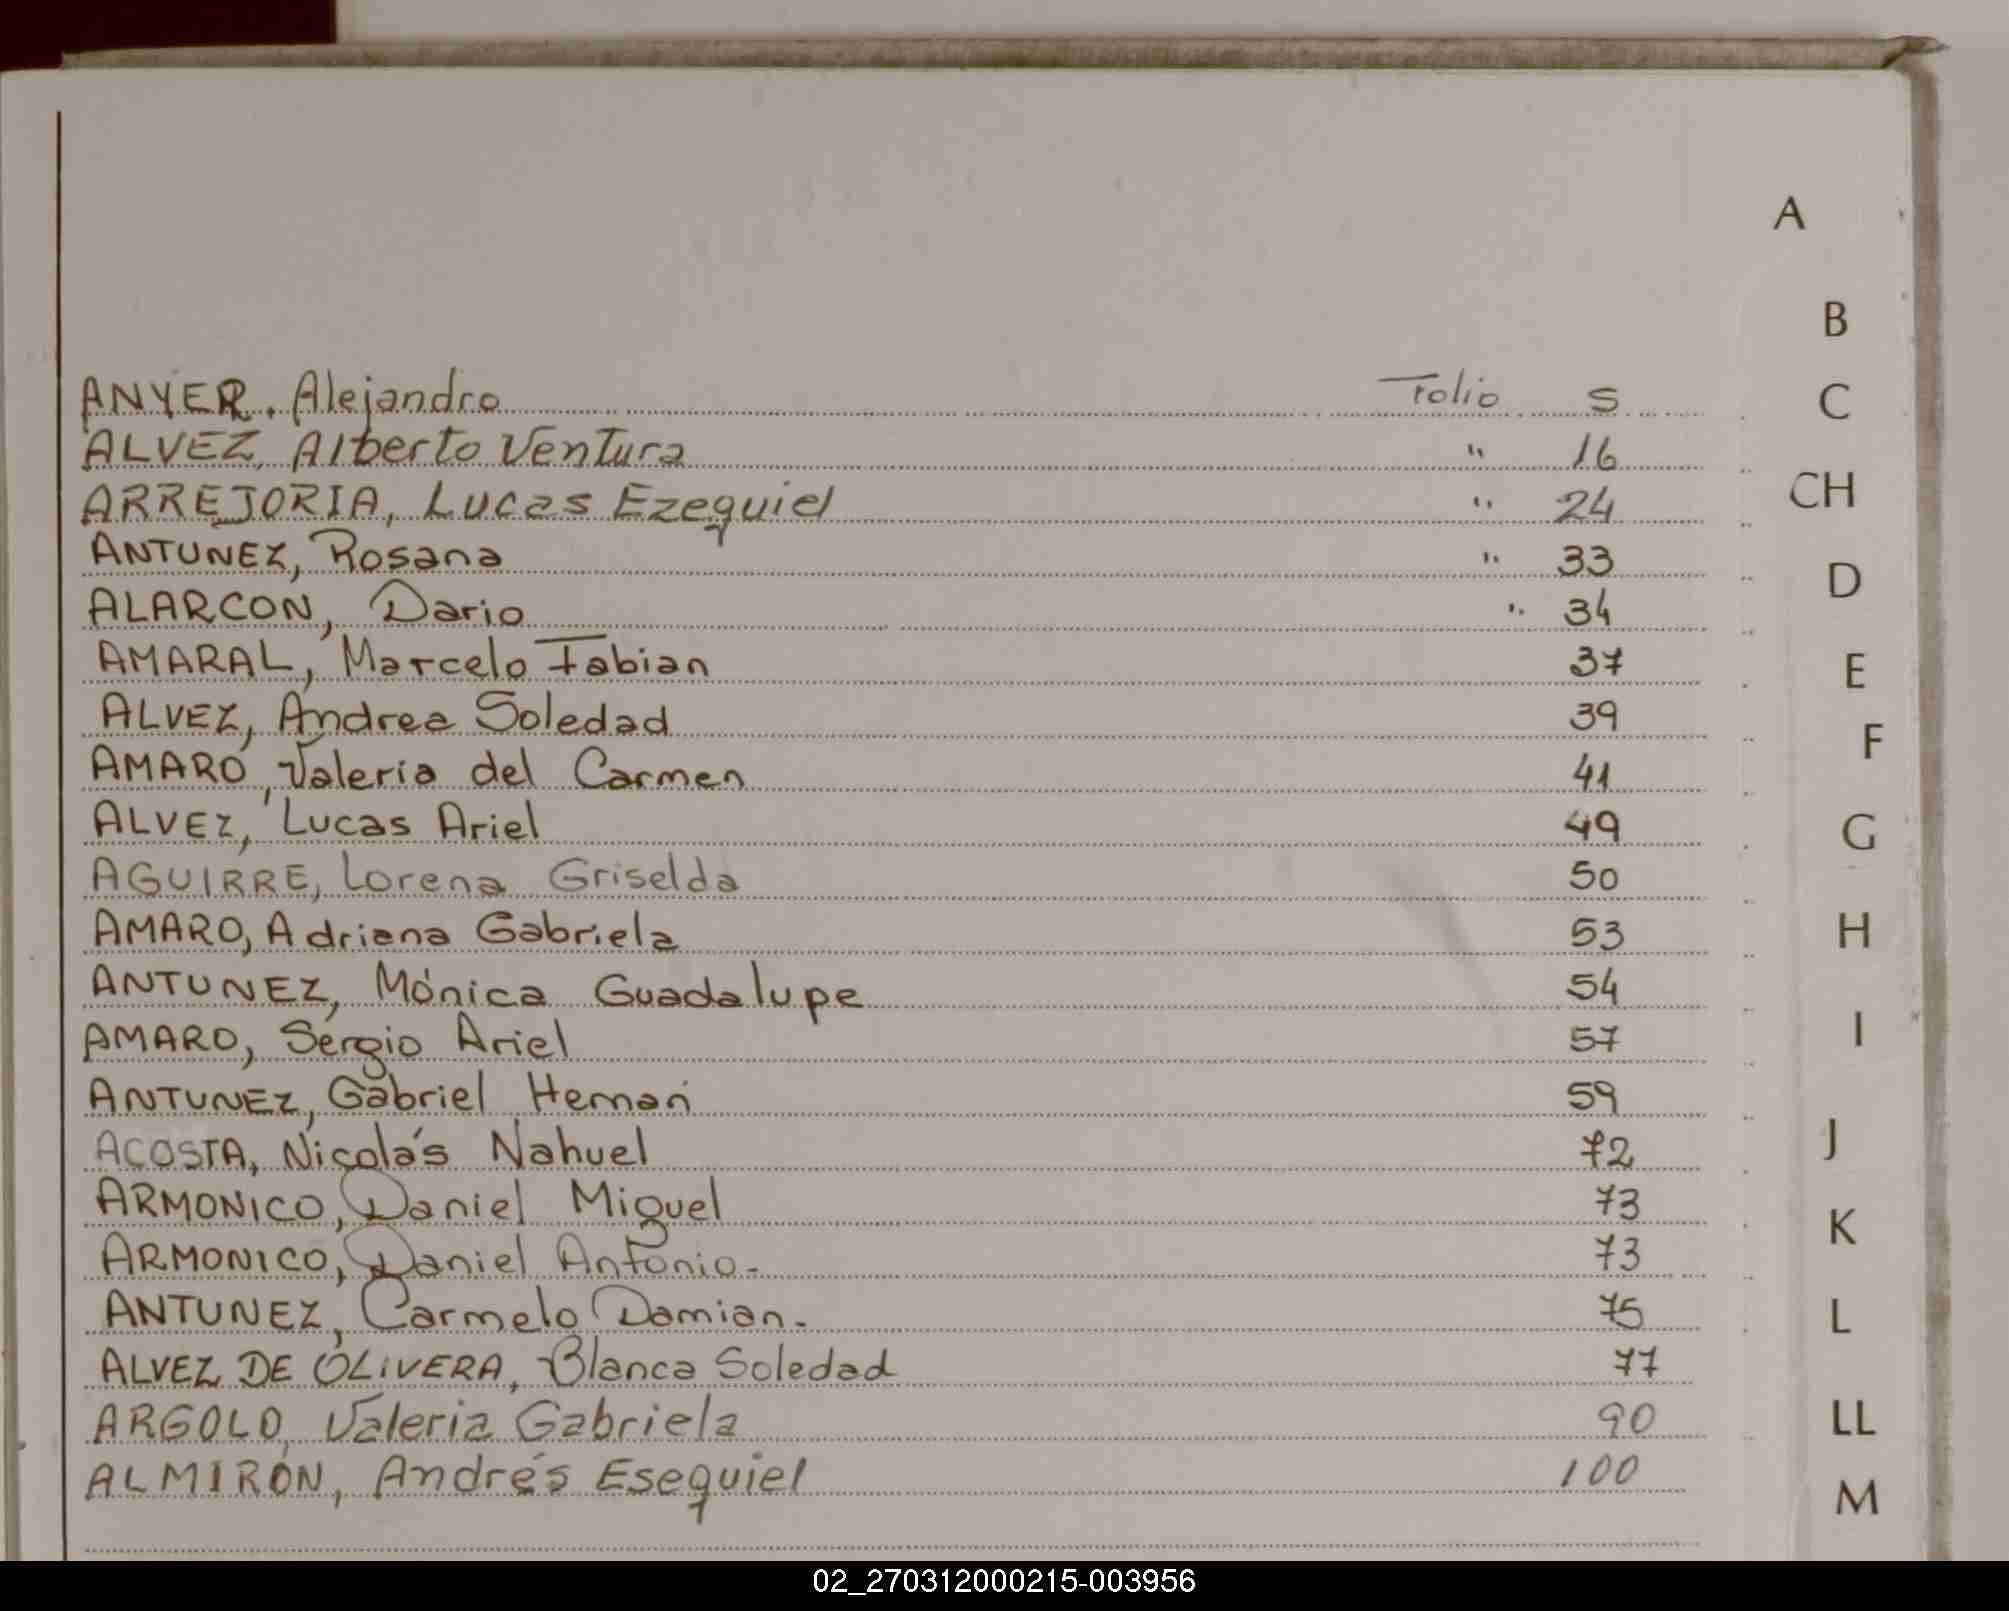 A
B
ANYER, Alejandro Folio 5
C
ALVEZ, Alberto Ventura " 16
ARREJORIA, Lucas Ezequiel " 24
CH
ANTUNEZ, Rosana " 33
D
ALARCON, Dario " 34
AMARAL, Marcelo Fabian 37
E
ALVEZ, Andrea Soledad 39
F
AMARO, Valeria del Carmen 41
ALVEZ, Lucas Ariel 49
G
AGUIRRE, Lorena Griselda 50
AMARO, Adriana Gabriela 53
H
ANTUNEZ, Mónica Guadalupe 54
I
AMARO, Sergio Ariel 57
ANTUNEZ, Gabriel Hernán 59
J
ACOSTA, Nicolás Nahuel 72
ARMONICO, Daniel Miguel 73
K
ARMONICO, Daniel Antonio- 73
ANTUNEZ, Carmelo Damian- 75
L
ALVEZ DE OLIVERA, Blanca Soledad 77
ARGOLO, Valeria Gabriela 90
LL
ALMIRÓN, Andrés Esequiel 100
M
02_270312000215-003956